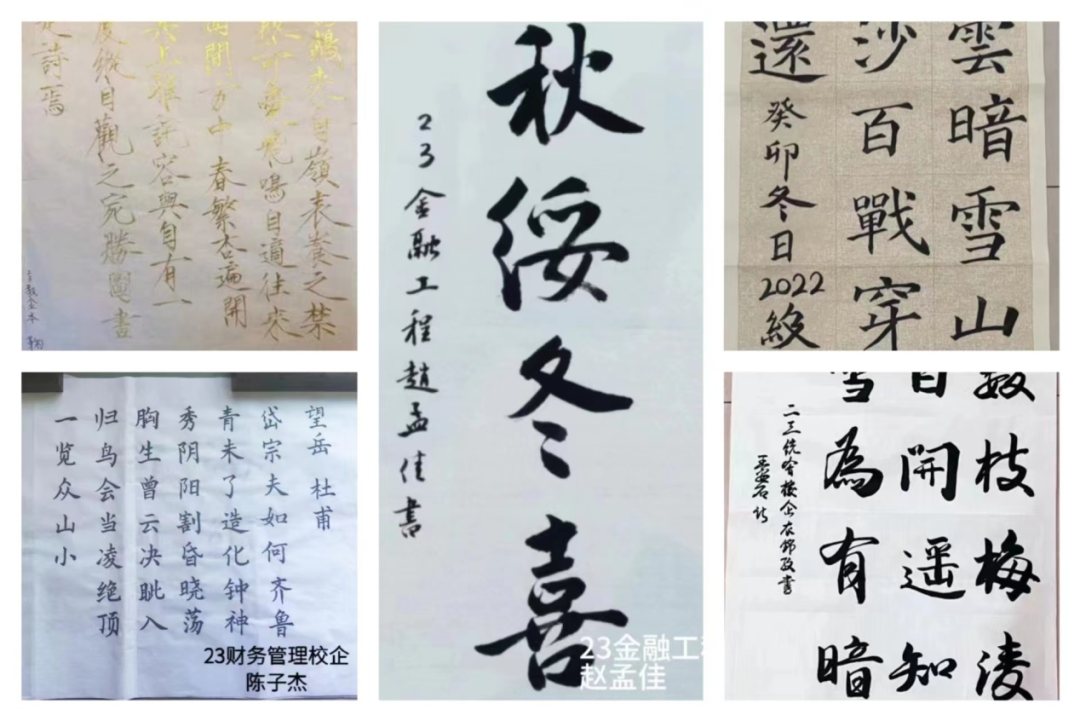 鵡來自嶺表養之禁
可愛飛鳴自適往來
間方中春繁杏遍開
其上雅詫容與自有一
度縱目觀之宛勝圖畫
是詩焉
秋綏冬喜
23金融工程趙孟佳書
23金融工程
赵孟佳
雲暗雪山
沙百戰穿
還
癸卯冬日2022級
望岳 杜甫
岱宗夫如何齐鲁
青未了造化钟神
秀阴阳割昏晓荡
胸生曾云决眦入
归鸟会当凌绝顶
一览众山小
23财务管理校企
陈子杰
數枝梅凌
自開遥知
雪為有暗